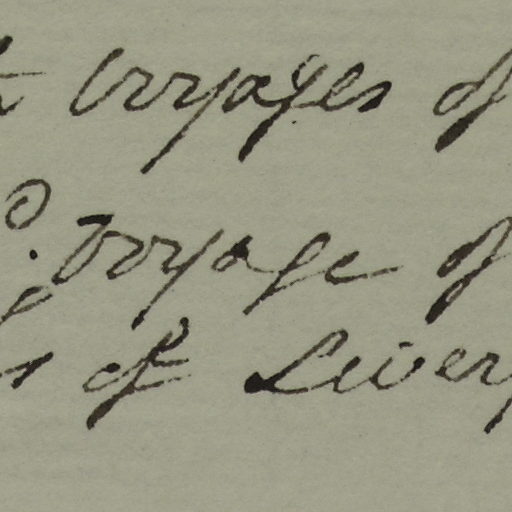 voyages of
voyage of
of Liver